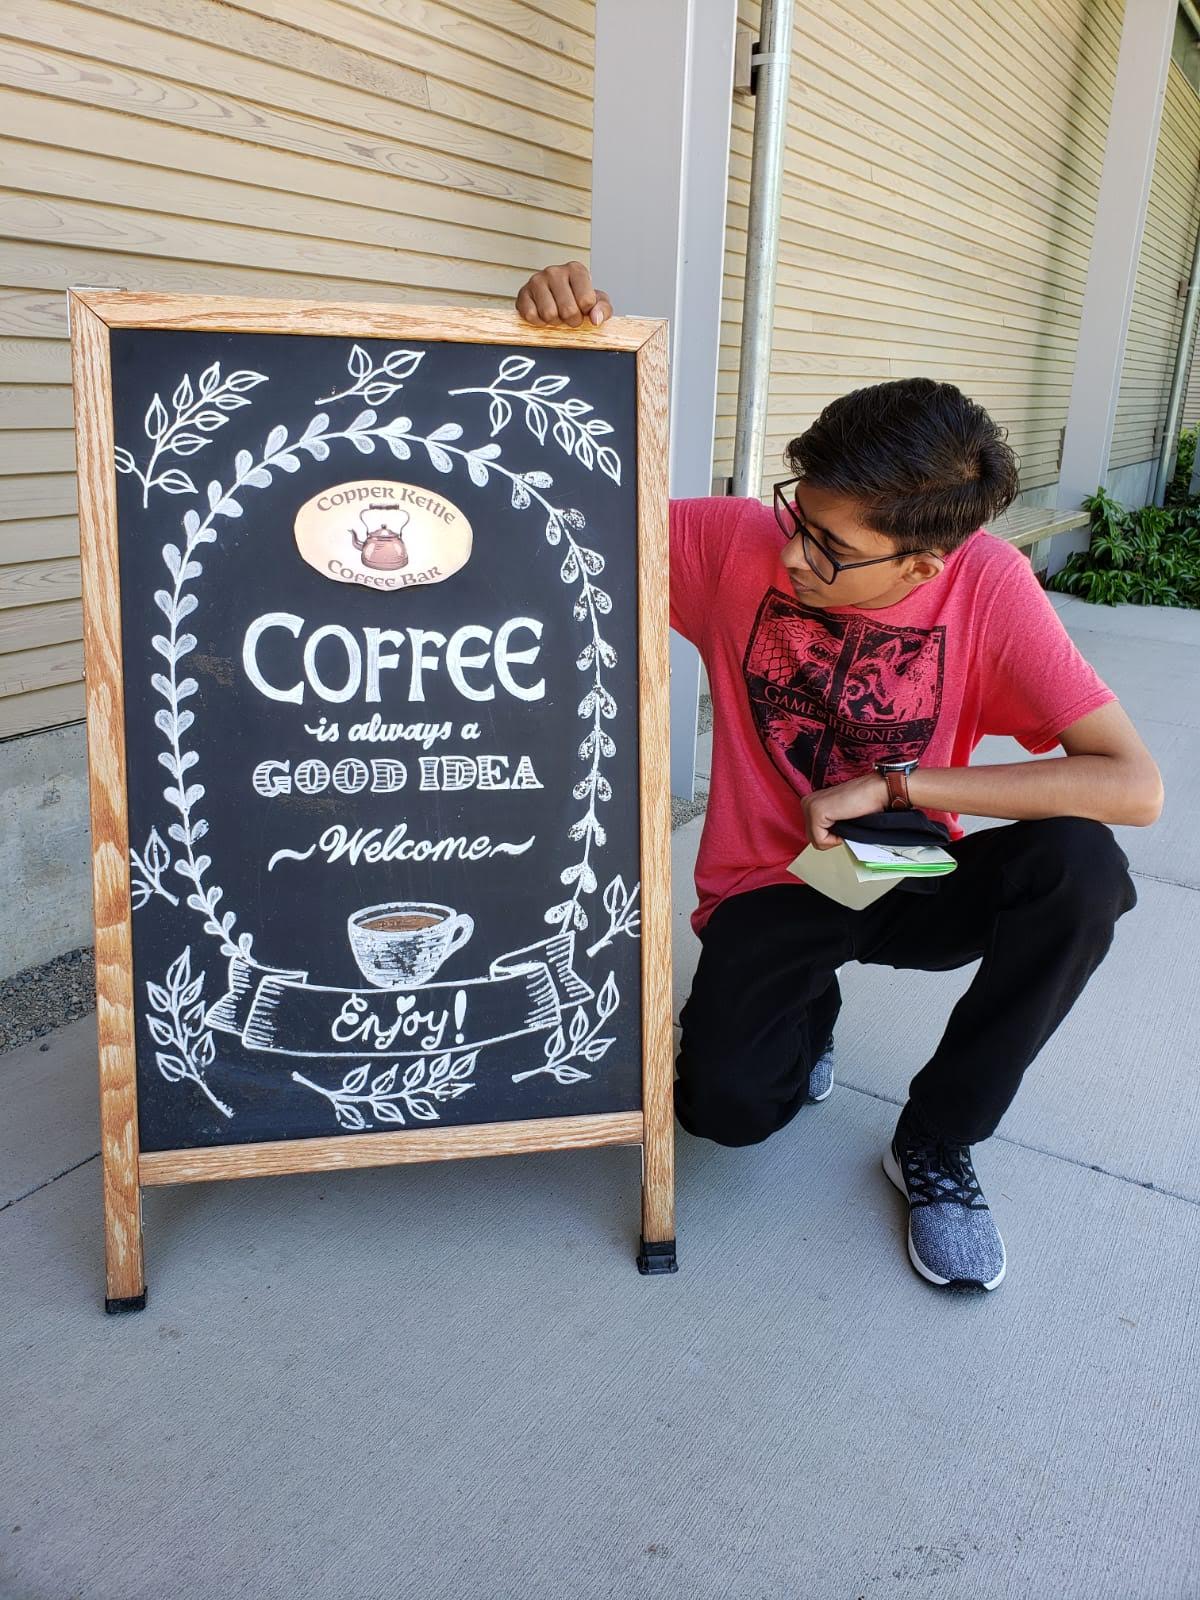 Copper Kettle
Coffee Bar
COFFEE
is always a
GOOD IDEA
~Welcome~
Enjoy!
GAME OF THRONES